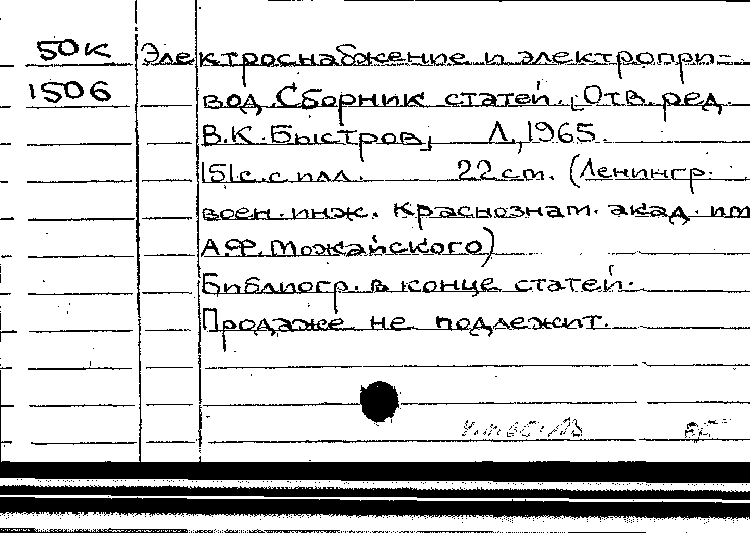 50к Электроснабжение и электропри=
1506 вод. Сборник статей. [Отв. ред.
В.К. Быстров, Л., 1965.
151с. с илл. 22 cm. (Ленингр.
воен. инж. Краснознам. акад. им
А.Ф. Можайского)
Библиогр. в конце статей.
Продаже не подлежит.